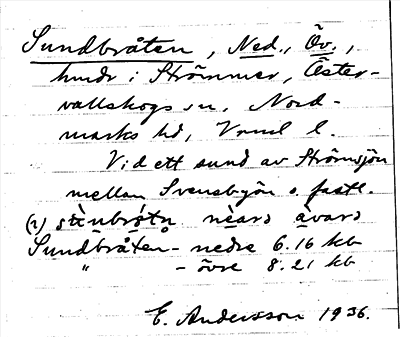 Sundbråten, Ned., Öv.,
hmdr i Strömmer, Öster-
vallskogs sn, Nord-
marks hd, Vrml l.
Vid ett sund av Strömsjön
mellan Svensbyön o. fastl.
(2) sùnbrǿtn nèars àvars
Sundbråten - nedre 6.16 kb
" - övre 8.21 kb
E. Andersson 1936.